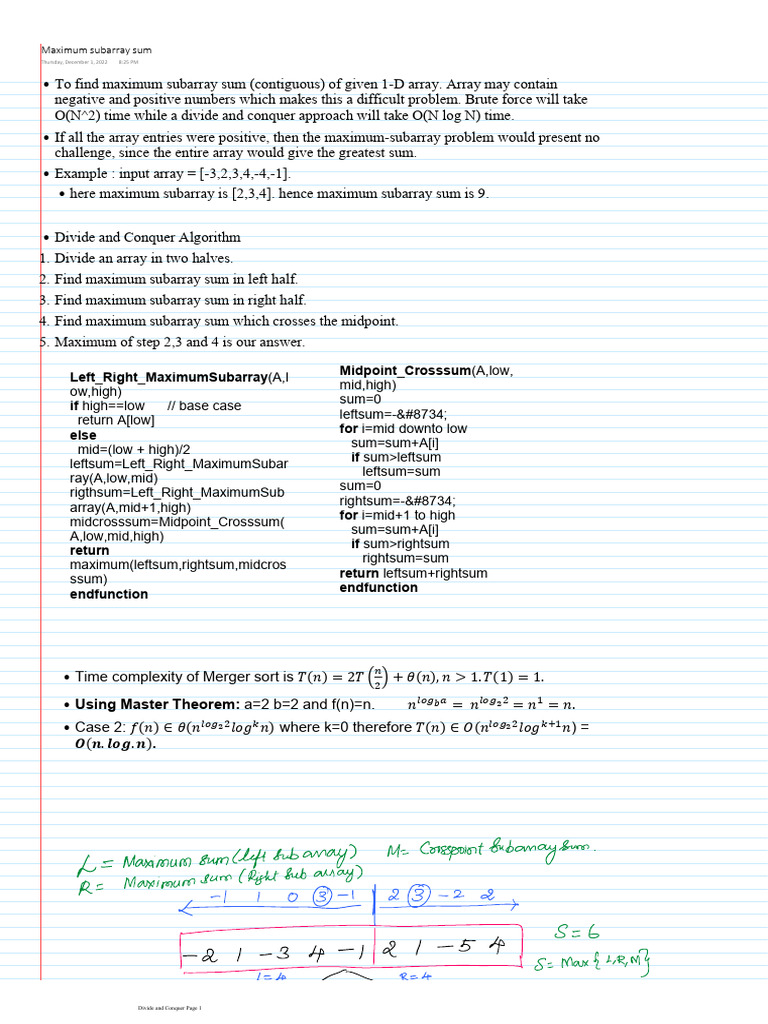 Maximum subarray sum
Thursday, December 1, 2022 8:25 PM
• To find maximum subarray sum (contiguous) of given 1-D array. Array may contain
negative and positive numbers which makes this a difficult problem. Brute force will take
O(N^2) time while a divide and conquer approach will take O(N log N) time.
• If all the array entries were positive, then the maximum-subarray problem would present no
challenge, since the entire array would give the greatest sum.
• Example : input array = [-3,2,3,4,-4,-1].
• here maximum subarray is [2,3,4]. hence maximum subarray sum is 9.
• Divide and Conquer Algorithm
1. Divide an array in two halves.
2. Find maximum subarray sum in left half.
3. Find maximum subarray sum in right half.
4. Find maximum subarray sum which crosses the midpoint.
5. Maximum of step 2,3 and 4 is our answer.
Left_Right_MaximumSubarray(A,l
ow,high)
if high==low // base case
return A[low]
else
mid=(low + high)/2
leftsum=Left_Right_MaximumSubar
ray(A,low,mid)
rigthsum=Left_Right_MaximumSub
array(A,mid+1,high)
midcrosssum=Midpoint_Crosssum(
A,low,mid,high)
return
maximum(leftsum,rightsum,midcros
ssum)
endfunction
Midpoint_Crosssum(A,low,
mid,high)
sum=0
leftsum=-&#8734;
for i=mid downto low
sum=sum+A[i]
if sum>leftsum
leftsum=sum
sum=0
rightsum=-&#8734;
for i=mid+1 to high
sum=sum+A[i]
if sum>rightsum
rightsum=sum
return leftsum+rightsum
endfunction
• Time complexity of Merger sort is T(n) = 2T(n/2) + θ(n), n > 1. T(1) = 1.
• Using Master Theorem: a=2 b=2 and f(n)=n. n^{log_b a} = n^{log_2 2} = n^1 = n.
• Case 2: f(n) ∈ θ(n^{log_2 2} log^k n) where k=0 therefore T(n) ∈ O(n^{log_2 2} log^{k+1} n) =
O(n.log.n).
L = Maximum sum (left sub array) M = Corsspoint Subarray sum.
R = Maximum sum (Right sub array)
-1 1 0 3 -1 2 3 -2 2
S = 6
-2 1 -3 4 -1 2 1 -5 4
S = Max { L, R, M }
L = 4 R = 4
Divide and Conquer Page 1